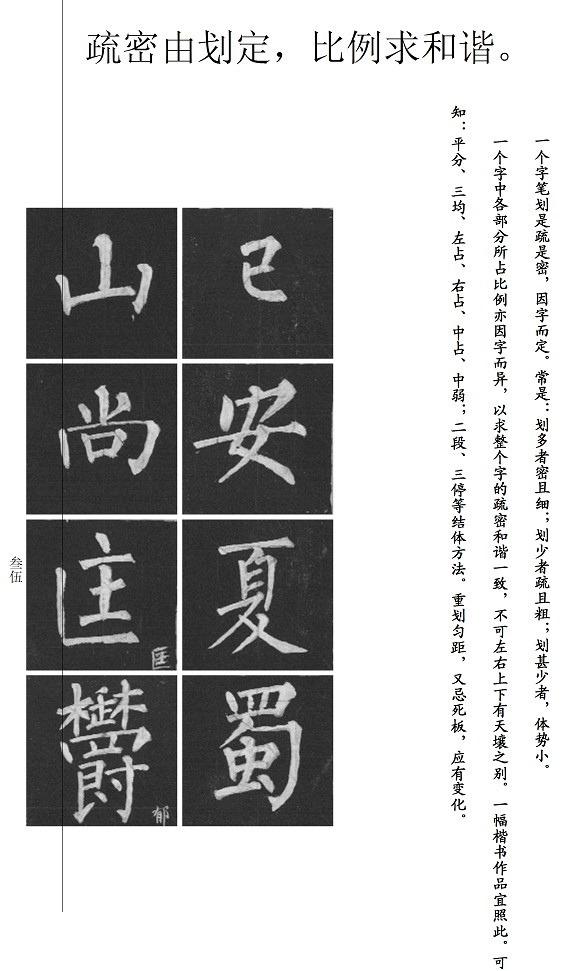 疏密由划定，比例求和谐。
一个字笔划是疏是密，因字而定。常是：划多者密且细；划少者疏且粗；划甚少者，体势小。
一个字中各部分所占比例亦因字而异，以求整个字的疏密和谐一致，不可左右上下有天壤之别。一幅楷书作品宜照此。可
知：平分、三均、左占、右占、中占、中弱；二段、三停等结体方法。重划匀距，又忌死板，应有变化。
已
安
夏
蜀
山
尚
匡
匡
欝
郁
叁伍